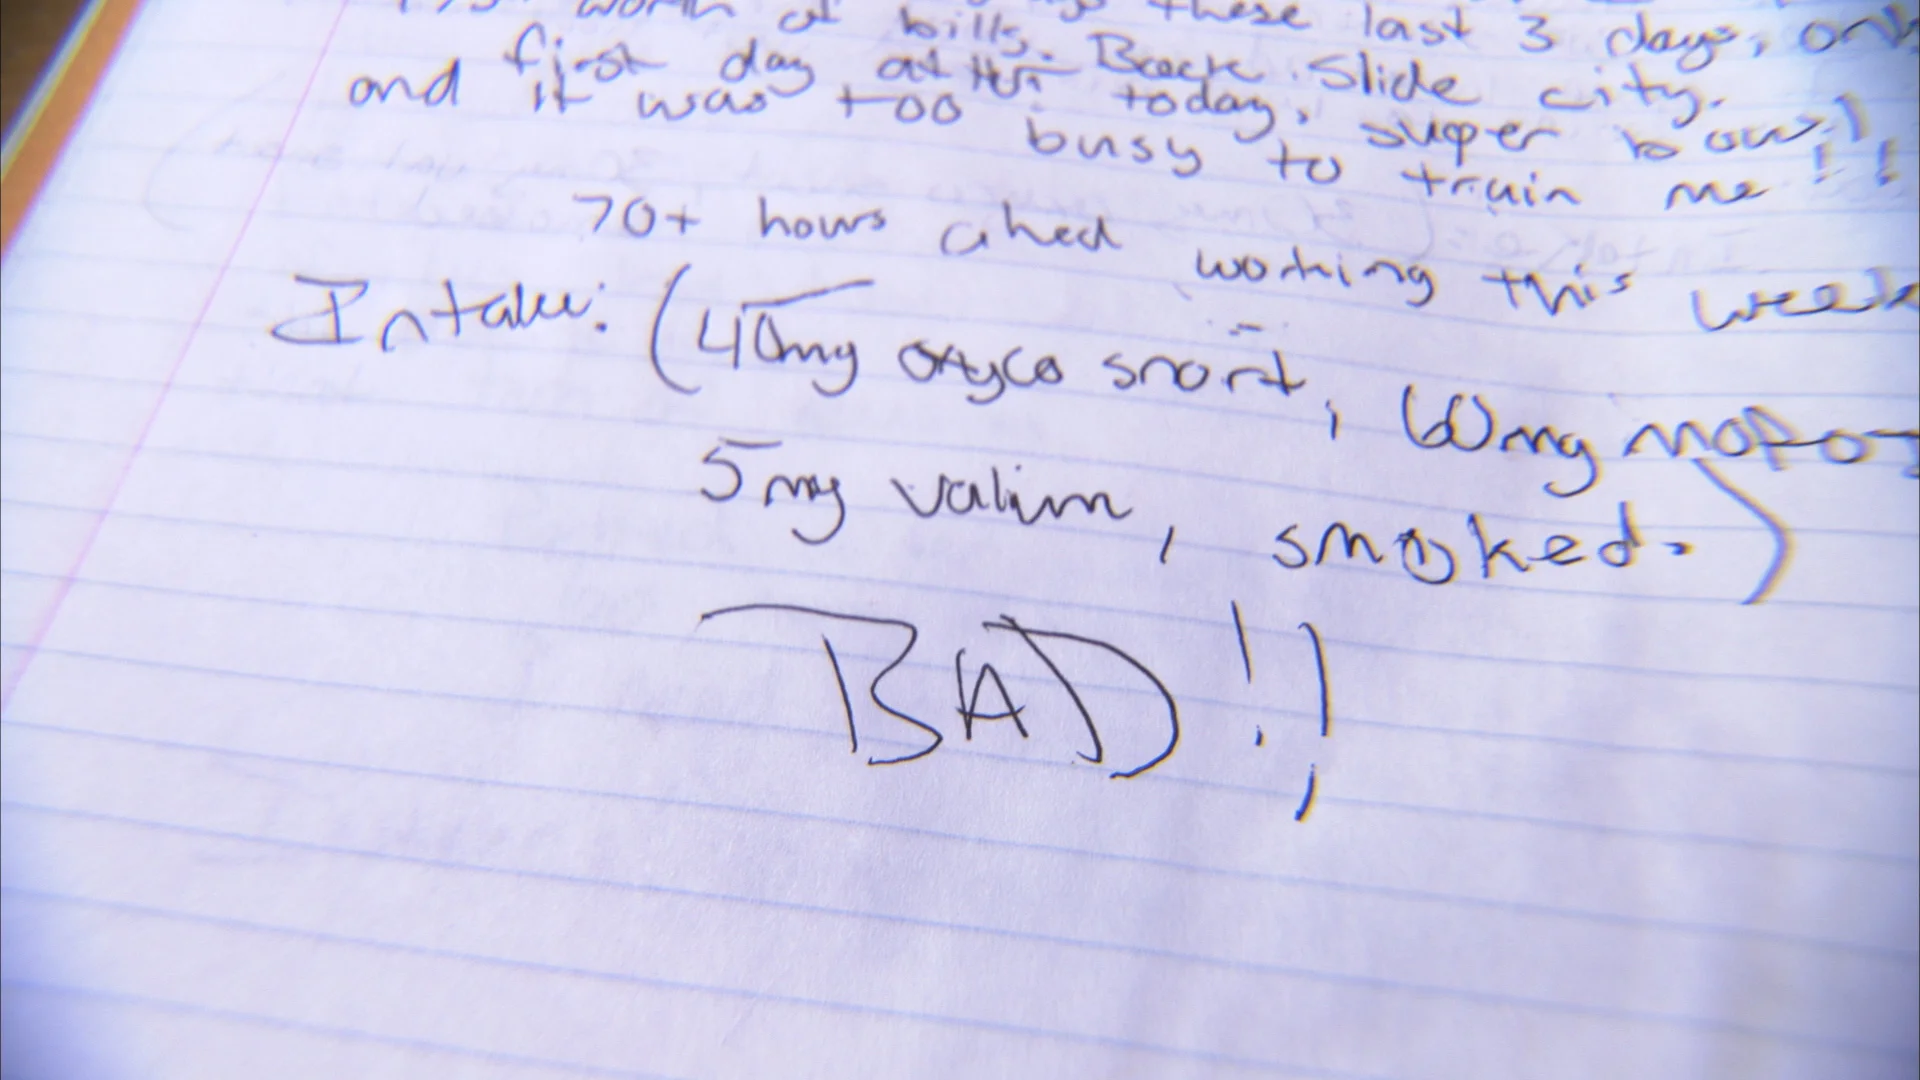 worth of bills. these last 3 days, only
first day at Back Slide city.
and it was too today, super bowl!
busy to train me!!
70+ hours ahed working this week
Intake: (40mg oxyco snort, 60mg
5mg valium, smoked.)
BAD!!